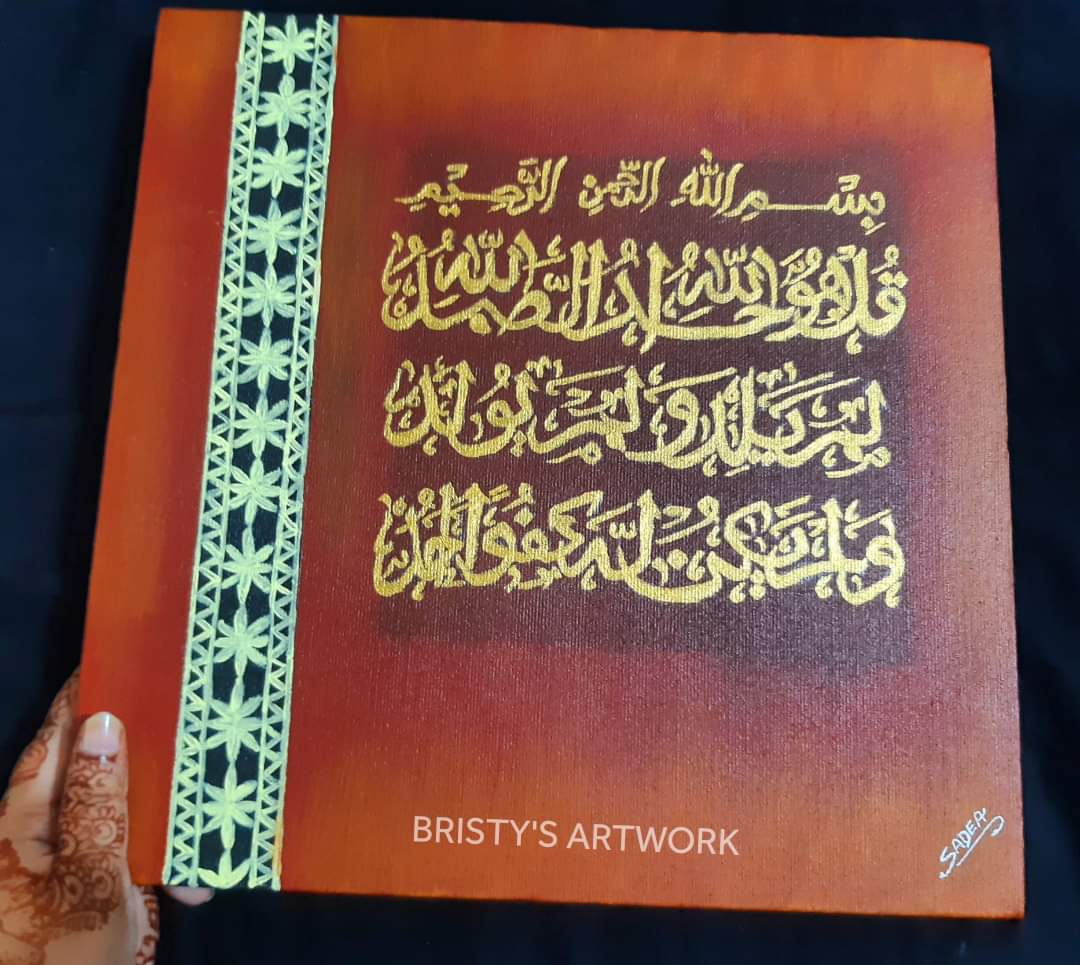 بِسْمِ اللهِ الرَّحْمٰنِ الرَّحِيْمِ
قُلْ هُوَ اللّٰهُ اَحَدٌ اَللّٰهُ الصَّمَدُ
لَمْ يَلِدْ وَلَمْ يُوْلَدْ
وَلَمْ يَكُنْ لَّهٗ كُفُوًا اَحَدٌ
BRISTY'S ARTWORK
SADEA